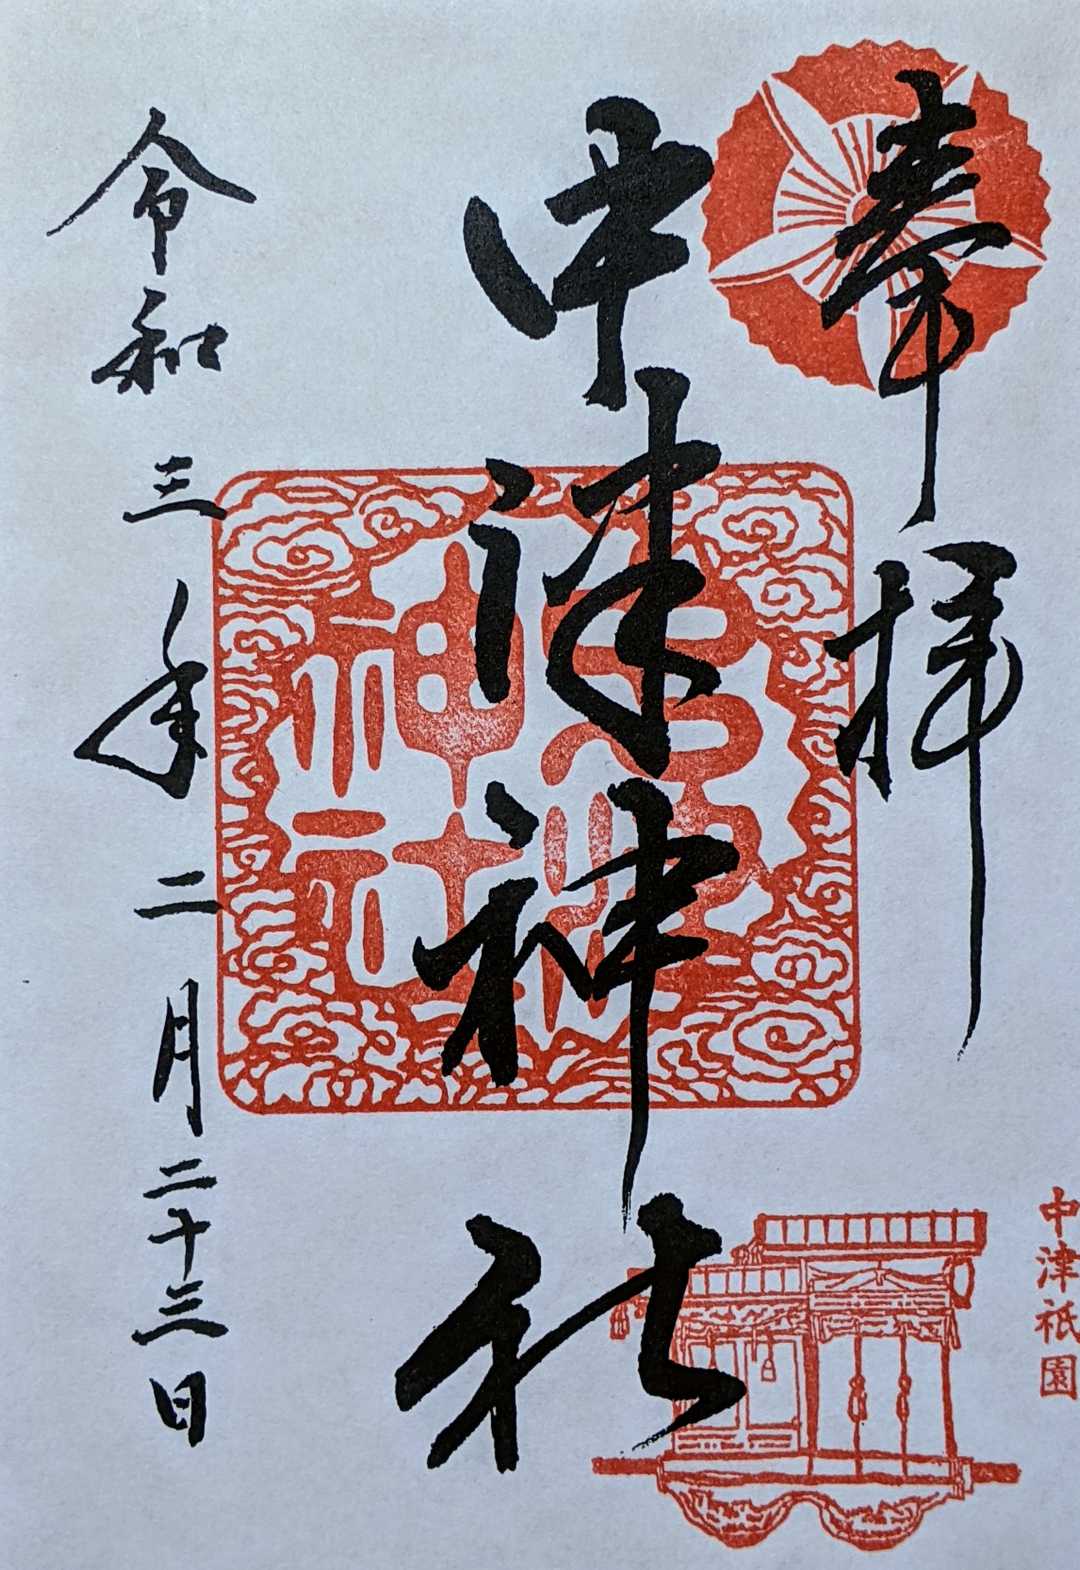 奉拝
中津神社
中津神社
令和三年二月二十三日
中津祇園